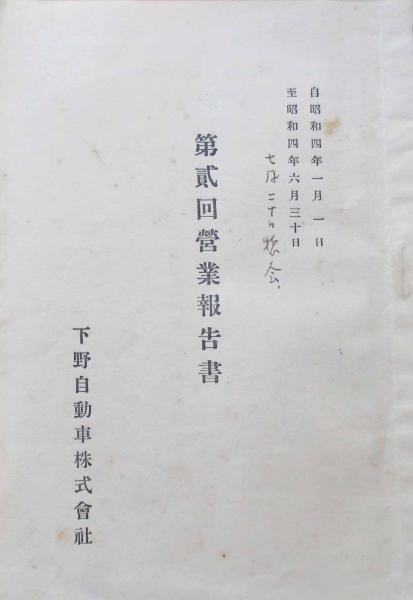 自昭和四年一月一日
至昭和四年六月三十日
七月二十日総会、
第貳回營業報告書
下野自動車株式會社